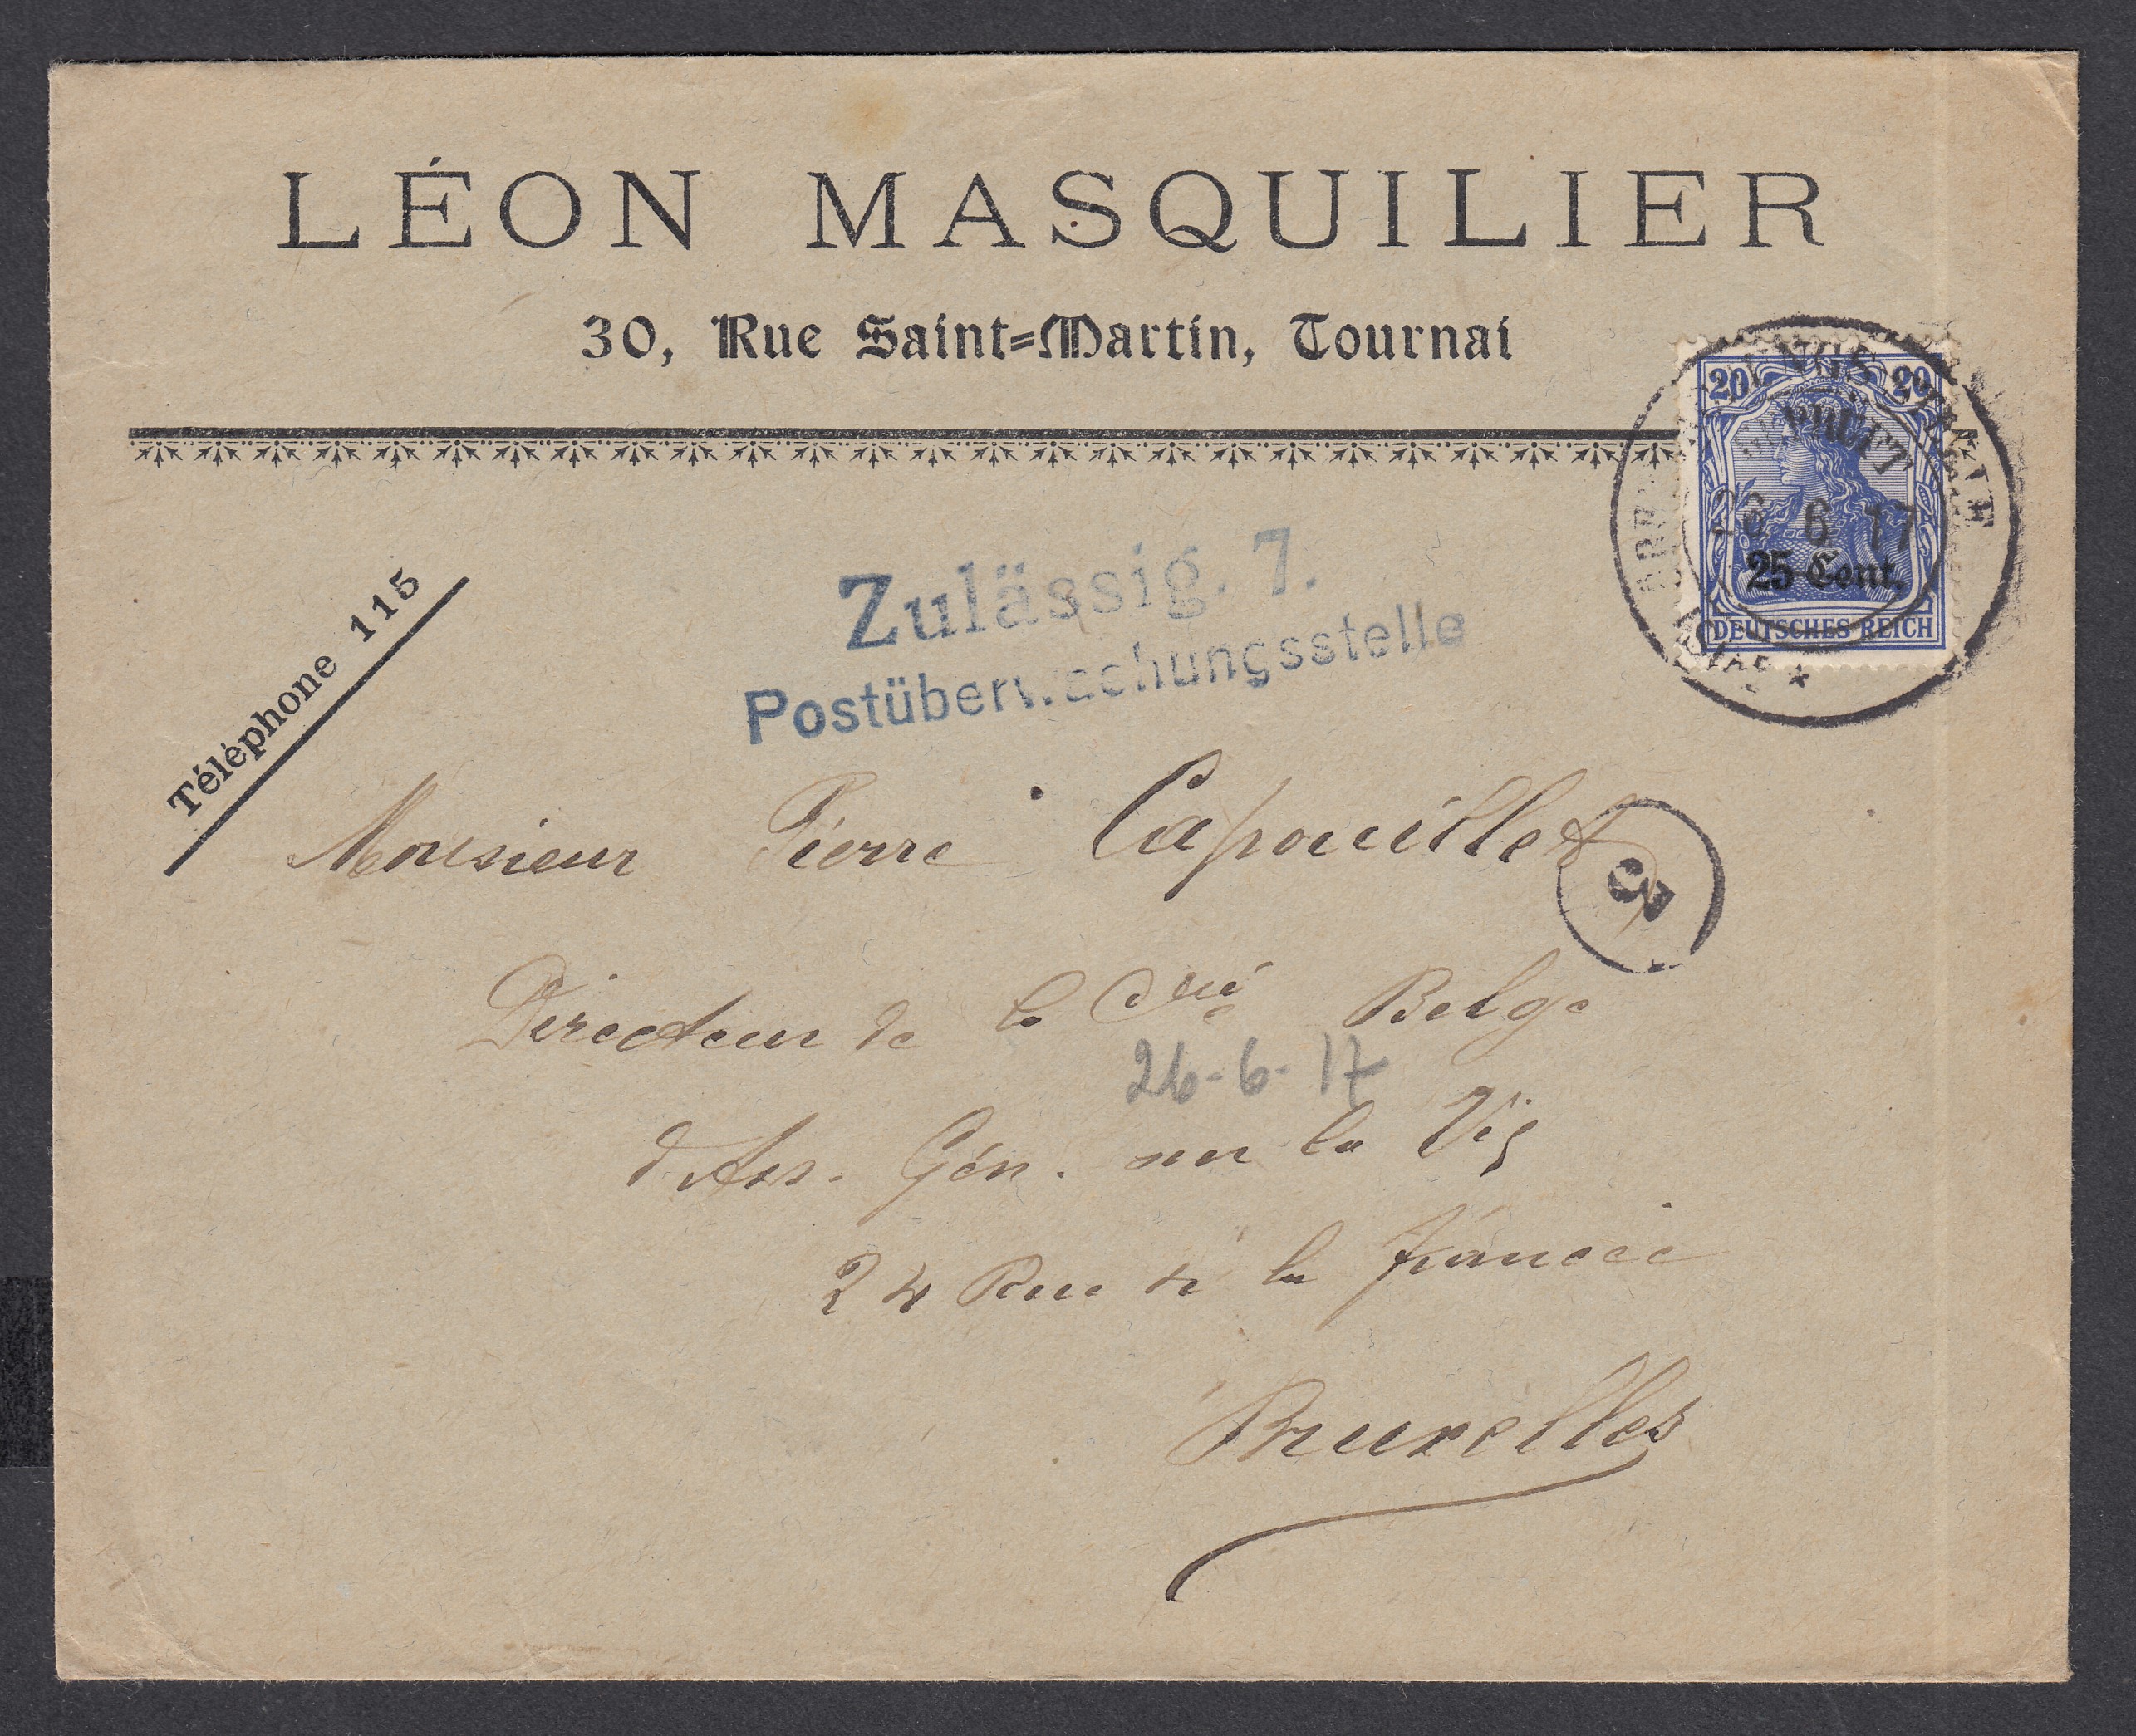 LÉON MASQUILIER
30, Rue Saint=Martin, Tournai
Téléphone 115
20 20
25 Cent.
DEUTSCHES REICH
GEPRÜFT
26 6 17
Zulässig. 7.
Postüberwachungsstelle
Monsieur Pierre Capouillet
Directeur de la Cie Belge
26-6-17
d'Ass. Gén. sur la Vie
24 Rue de la
Bruxelles